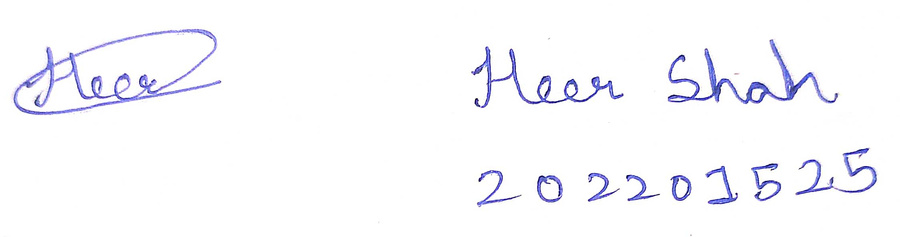 Heer
Heer Shah
202201525